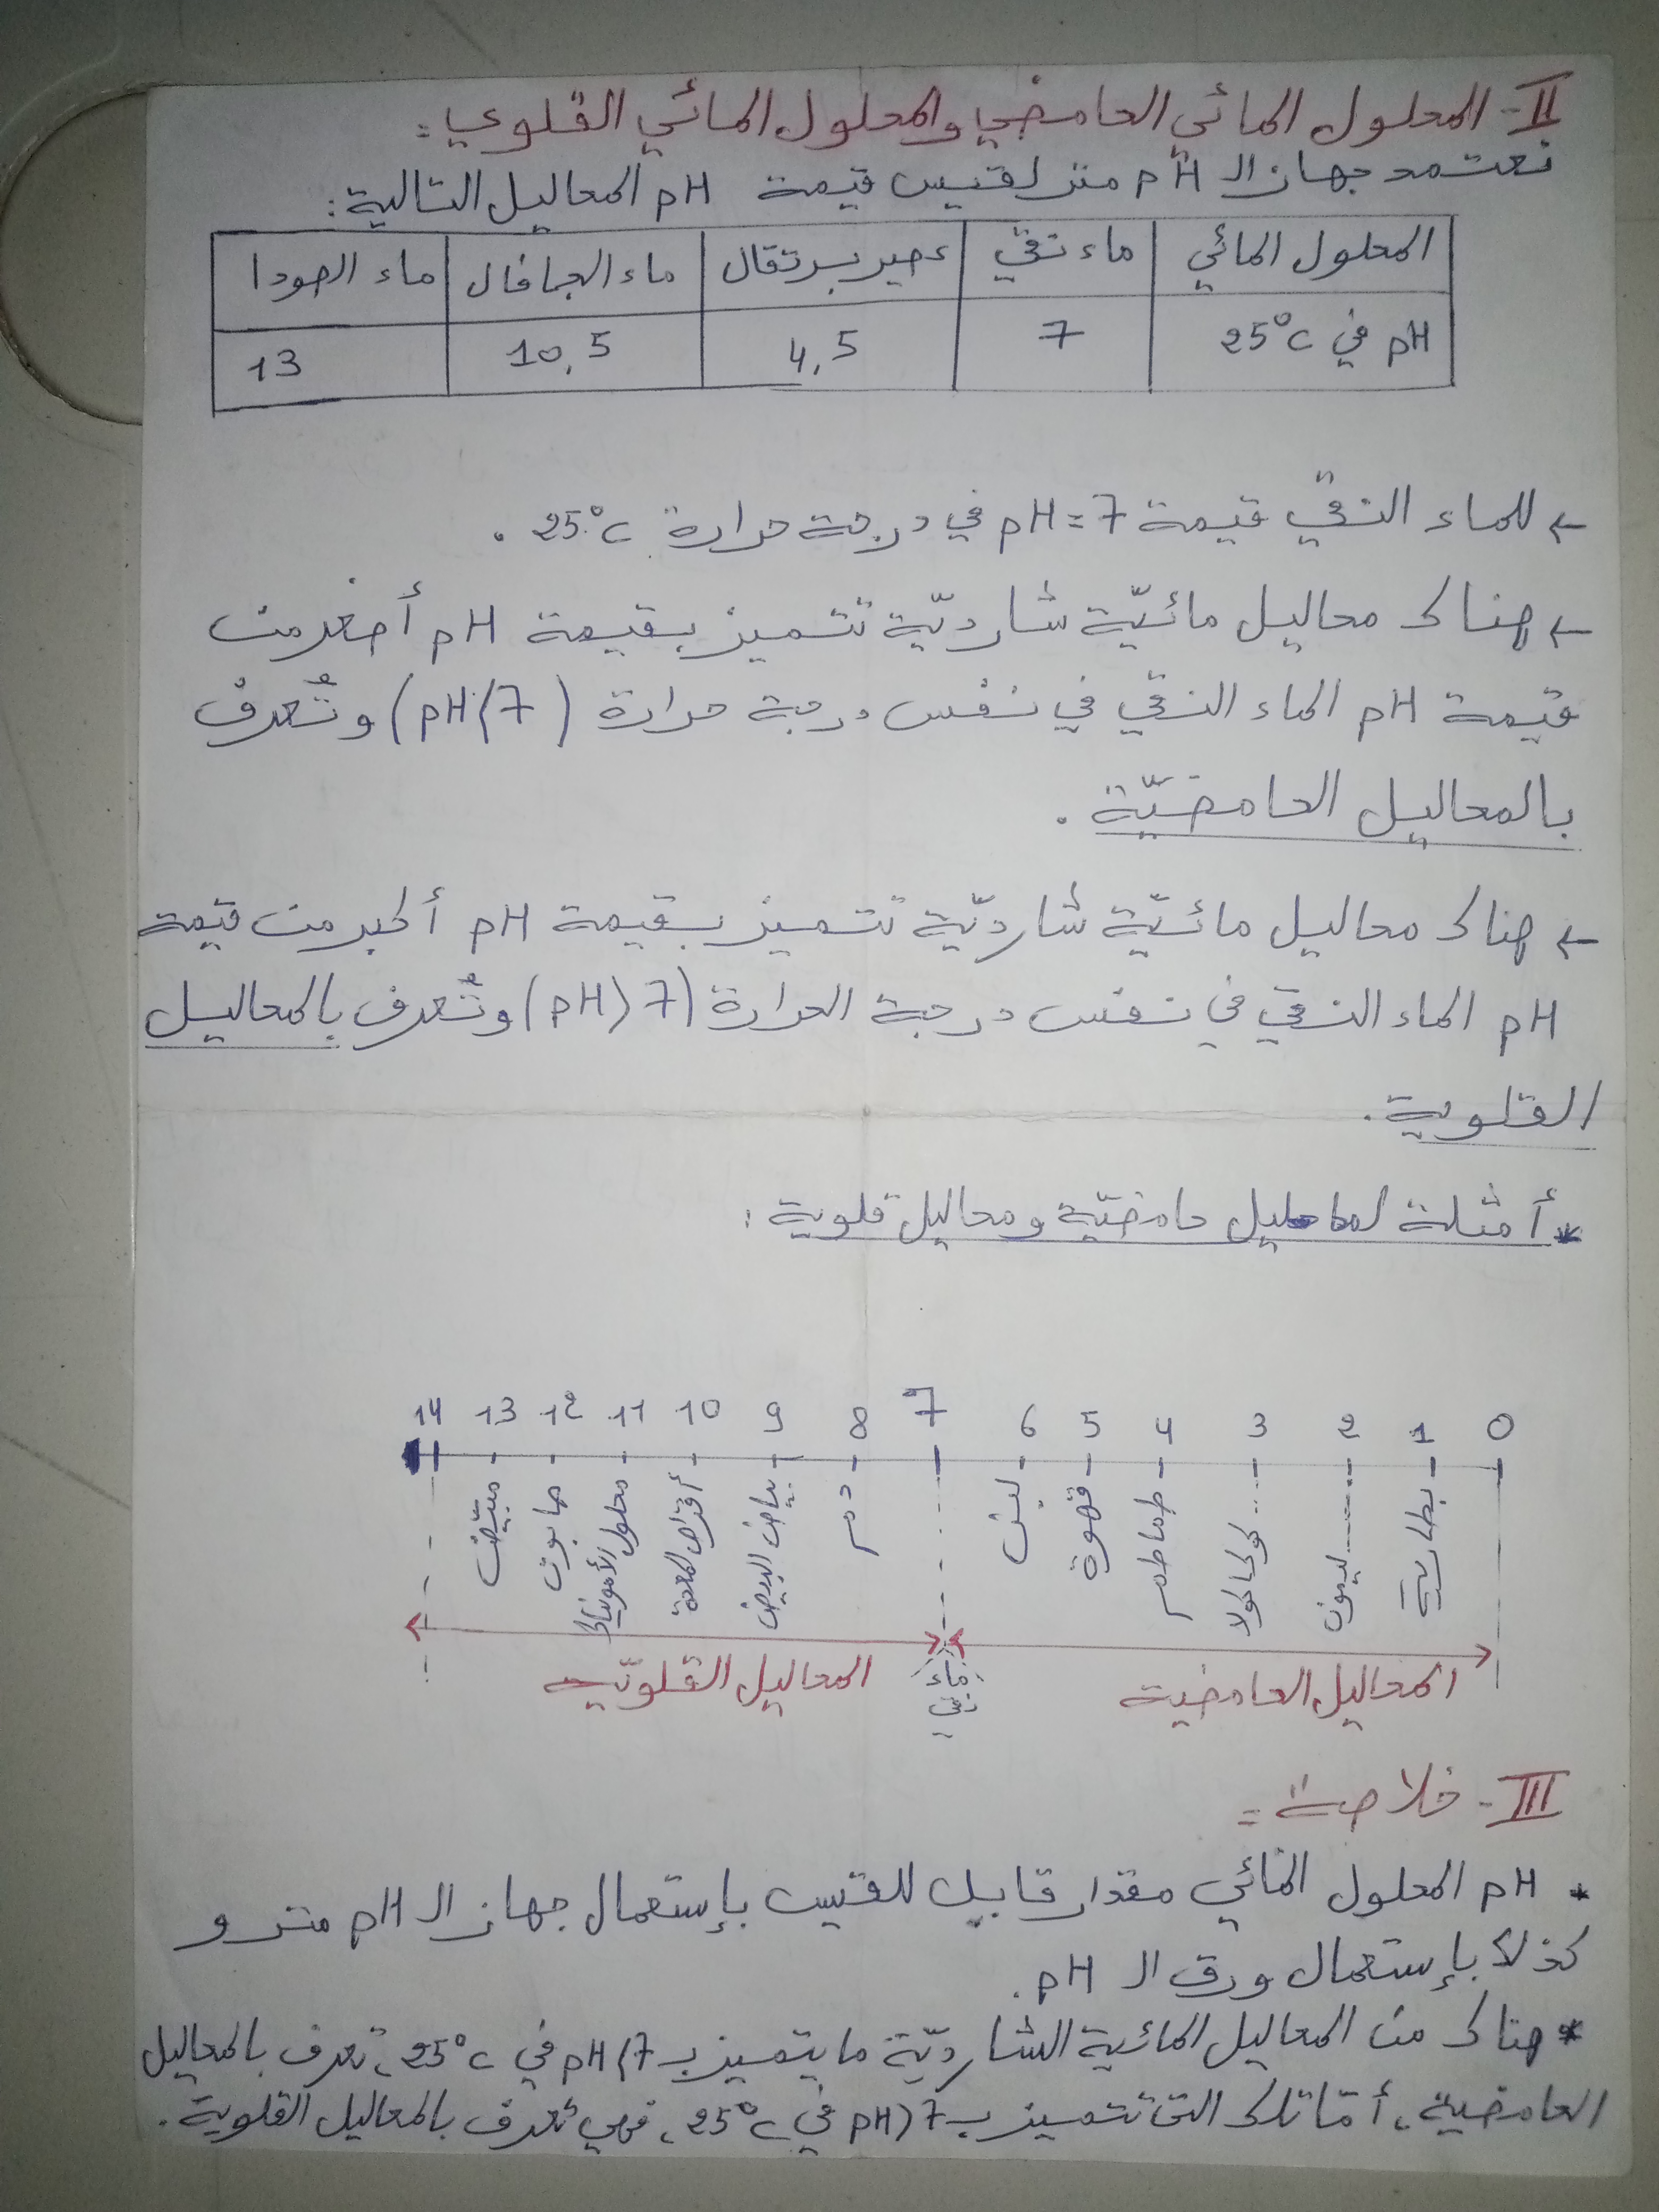 II- المحلول المائي الحامضي والمحلول المائي القلوي :
نعتمد جهاز الـ pH متر لقيس قيمة pH المحاليل التالية :
المحلول المائي | ماء نقي | عصير برتقال | ماء الجافال | ماء الصودا
pH في 25°C | 7 | 4,5 | 10,5 | 13
← للماء النقي قيمة pH = 7 في درجة حرارة 25°C .
← هناك محاليل مائيّة شارديّة تتميز بقيمة pH أصغر من
قيمة pH الماء النقي في نفس درجة حرارة (pH⟨7) وتُعرف
بالمحاليل الحامضيّة .
← هناك محاليل مائيّة شارديّة تتميز بقيمة pH أكبر من قيمة
pH الماء النقي في نفس درجة الحرارة (pH⟩7) وتُعرف بالمحاليل
القلوية .
* أمثلة لمحاليل حامضيّة ومحاليل قلوية :
14 13 12 11 10 9 8 7 6 5 4 3 2 1 0
بطارية
ليمون
كوكاكولا
طماطم
قهوة
لبن
دم
بياض البيض
أقراص المعدة
محلول الأمونياك
صابون
مبيّض
المحاليل الحامضية
ماء
نقي
المحاليل القلويّة
III- خلاصة :
* pH المحلول المائي مقدار قابل للقيس بإستعمال جهاز الـ pH متر و
كذلك بإستعمال ورق الـ pH .
* هناك من المحاليل المائية الشارديّة ما يتميز بـ pH⟨7 في 25°C، تعرف بالمحاليل
الحامضية، أمّا تلك التي تتميز بـ pH⟩7 في 25°C، فهي تُعرف بالمحاليل القلوية .